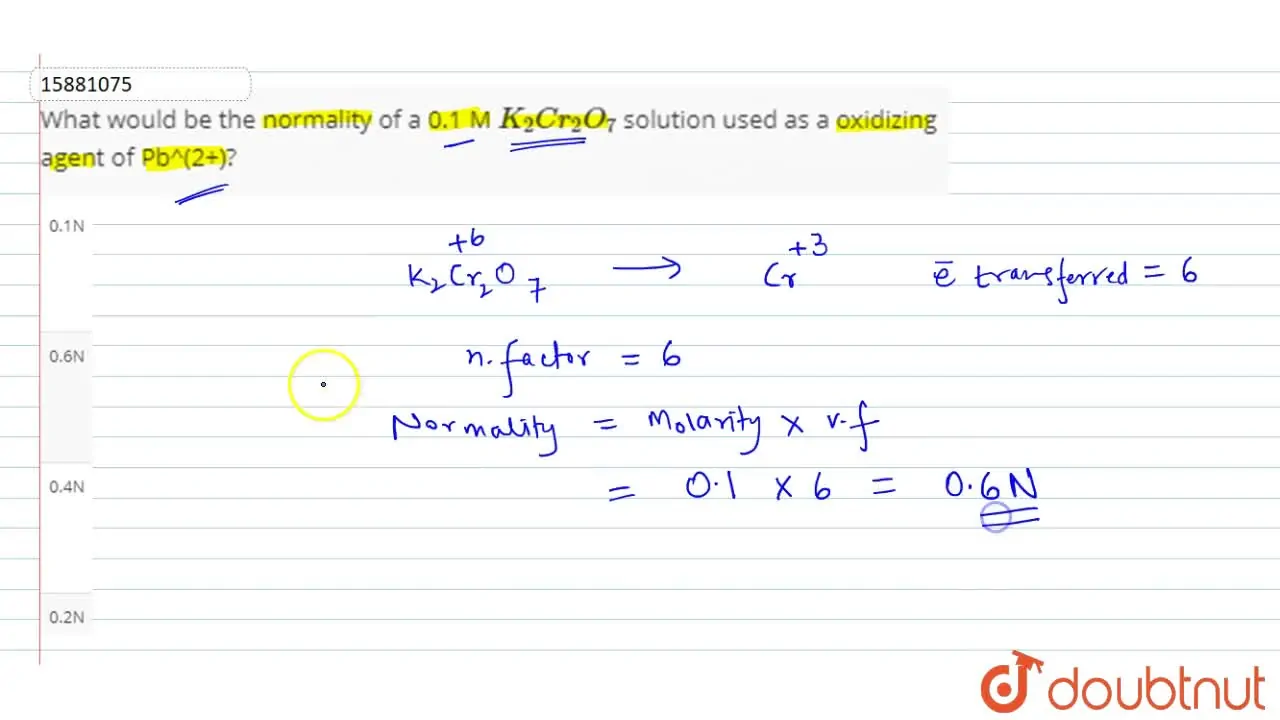 15881075
What would be the normality of a 0.1 M K₂Cr₂O₇ solution used as a oxidizing
agent of Pb^(2+)?
0.1N
+6 +3
K₂Cr₂O₇ → Cr e̅ transferred = 6
0.6N
n.factor = 6
Normality = Molarity × v.f
0.4N
= 0.1 × 6 = 0.6N
0.2N
doubtnut